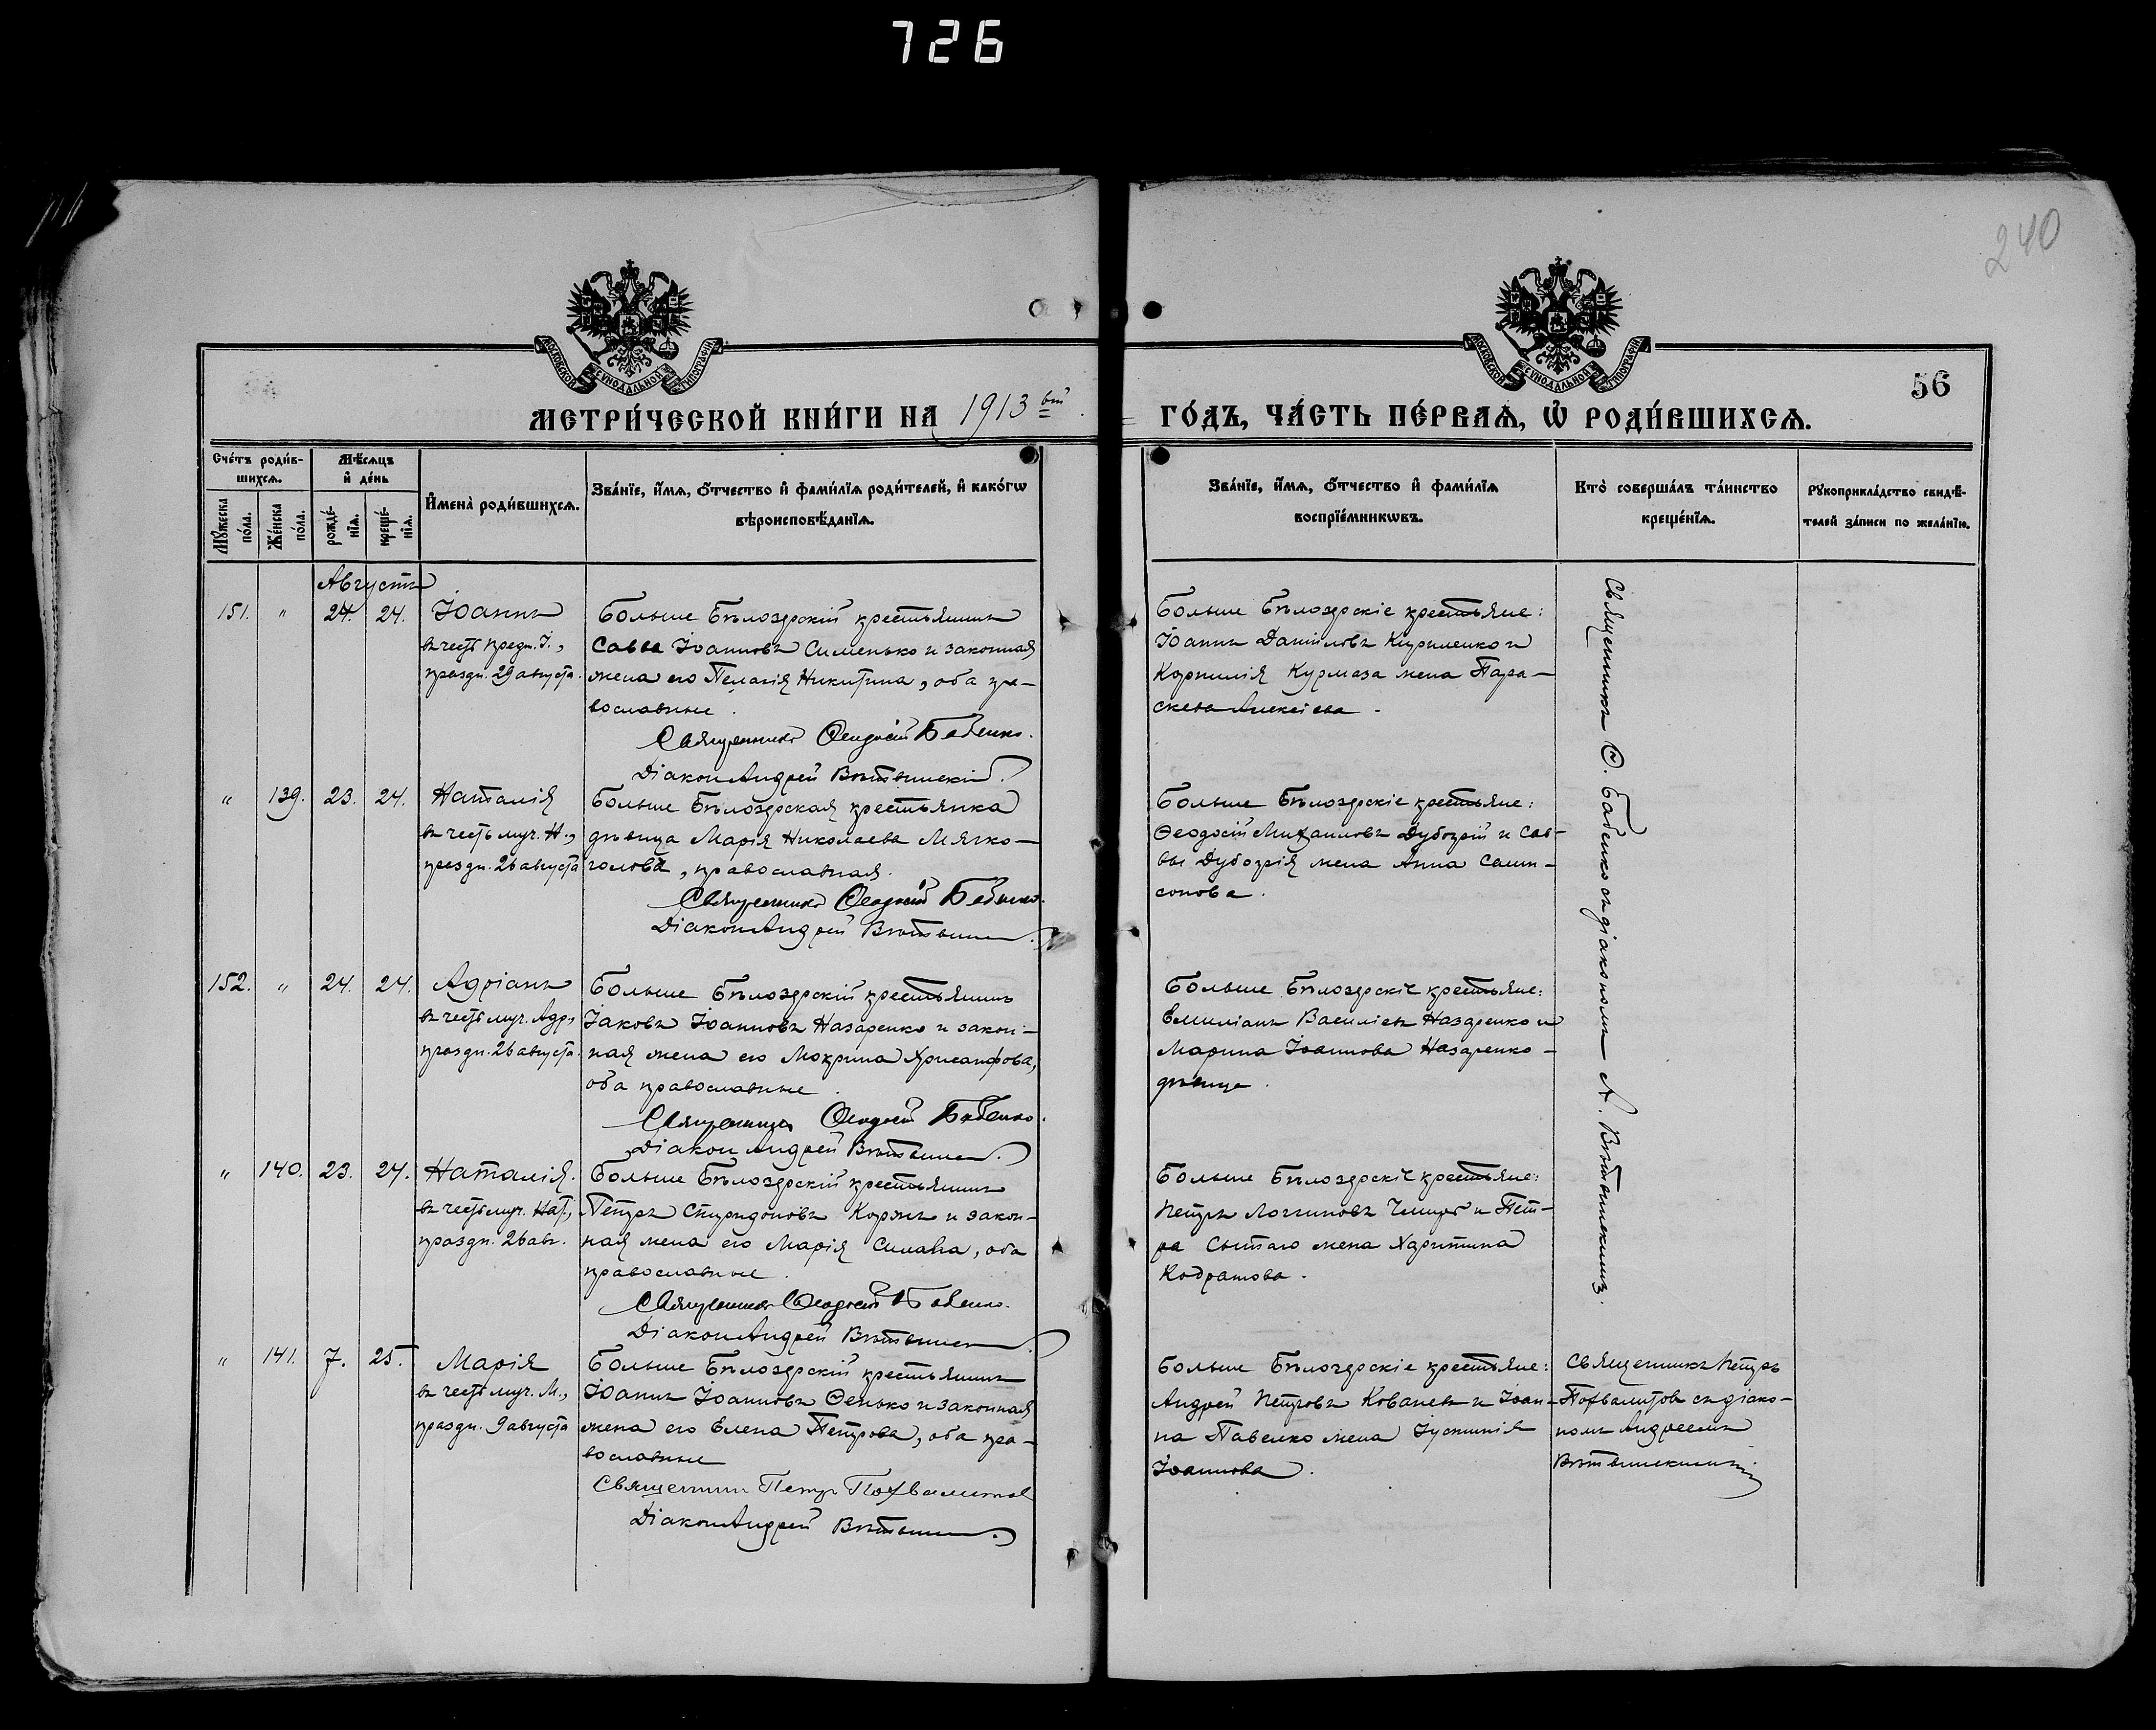 726
240
56
МОСКОВСКОЙ СѴНОДАЛЬНОЙ ТИПОГРАФІИ
МОСКОВСКОЙ СѴНОДАЛЬНОЙ ТИПОГРАФІИ
МЕТРИ́ЧЕСКОЙ КНИ́ГИ НА 1913 ый ГО́ДЪ, ЧА́СТЬ ПЕ́РВАѦ, Ѡ҆ РОДИ́ВШИХСѦ.
Сче́тъ роди́в-
шихсѧ.
Мꙋ́жеска по́ла.
Же́нска по́ла.
Мѣ́сѧцъ
и҆ де́нь
рожде́-
нїѧ.
креще́-
нїѧ.
И҆мена̀ роди́вшихсѧ.
Зва́нїе, и҆́мѧ, ѻ҆́тчество и҆ фами́лїѧ роди́телей, и҆ како́гѡ
вѣроисповѣ́данїѧ.
Зва́нїе, и҆́мѧ, ѻ҆́тчество и҆ фами́лїѧ
воспрїе́мникѡвъ.
Кто̀ соверша́лъ та́инство
креще́нїѧ.
Рꙋкоприкла́дство свидѣ́-
телей за́писи по жела́нїю.
Августъ
151. " 24. 24. Іоаннъ
въ честь предт. І.,
праздн. 29 августа.
Больше Бѣлозерскій крестьянинъ
Савва Іоанновъ Сименько и законная
жена его Пелагія Никитина, оба пра-
вославные.
Священникъ Ѳеодосій Бабенко.
Діаконъ Андрей Вѣтвинскій.
Больше Бѣлозерскіе крестьяне:
Іоаннъ Даніиловъ Кириленко и
Корнилія Курмаза жена Пара-
скева Алексіева.
" 139. 23. 24. Наталія
въ честь муч. Н.,
праздн. 26 августа
Больше Бѣлозерская крестьянка
дѣвица Марія Николаева Мягко-
голова, православная.
Священникъ Ѳеодосій Бабенко.
Діаконъ Андрей Вѣтвинскій.
Больше Бѣлозерскіе крестьяне:
Ѳеодосій Михаиловъ Дубогрій и Сав-
вы Дубогрія жена Анна Самп-
сонова.
152. " 24. 24. Адріанъ
въ честь муч. Адр.,
праздн. 26 августа.
Больше Бѣлозерскій крестьянинъ
Іаковъ Іоанновъ Назаренко и закон-
ная жена его Мокрина Хрисанфова,
оба православные.
Священникъ Ѳеодосій Бабенко.
Діаконъ Андрей Вѣтвинскій.
Больше Бѣлозерскіе крестьяне:
Емиліанъ Василіевъ Назаренко и
Марина Іоаннова Назаренко -
дѣвица.
" 140. 23. 24. Наталія.
въ честь муч. Нат.,
праздн. 26 авг.
Больше Бѣлозерскій крестьянинъ
Петръ Спиридоновъ Коржъ и закон-
ная жена его Марія Силавна, оба
православные.
Священникъ Ѳеодосій Бабенко.
Діаконъ Андрей Вѣтвинскій.
Больше Бѣлозерскіе крестьяне:
Петръ Логгиновъ и Пет-
ра Сытаго жена Харитина
Кодратова.
Священникъ Ѳ. Бабенко съ діакономъ А. Вѣтвинскимъ.
" 141. 7. 25. Марія
въ честь муч. М.,
праздн. 9 августа
Больше Бѣлозерскій крестьянинъ
Іоаннъ Іоанновъ Ѳенько и законная
жена его Елена Петрова, оба пра-
вославные
Священникъ Петръ Похвалитовъ
Діаконъ Андрей Вѣтвинскій.
Больше Бѣлозерскіе крестьяне:
Андрей Петровъ Ковалевъ и Іоан-
на Павелко жена Іустинія
Іоаннова.
Священникъ Петръ
Похвалитовъ съ діако-
номъ Андреемъ
Вѣтвинскимъ